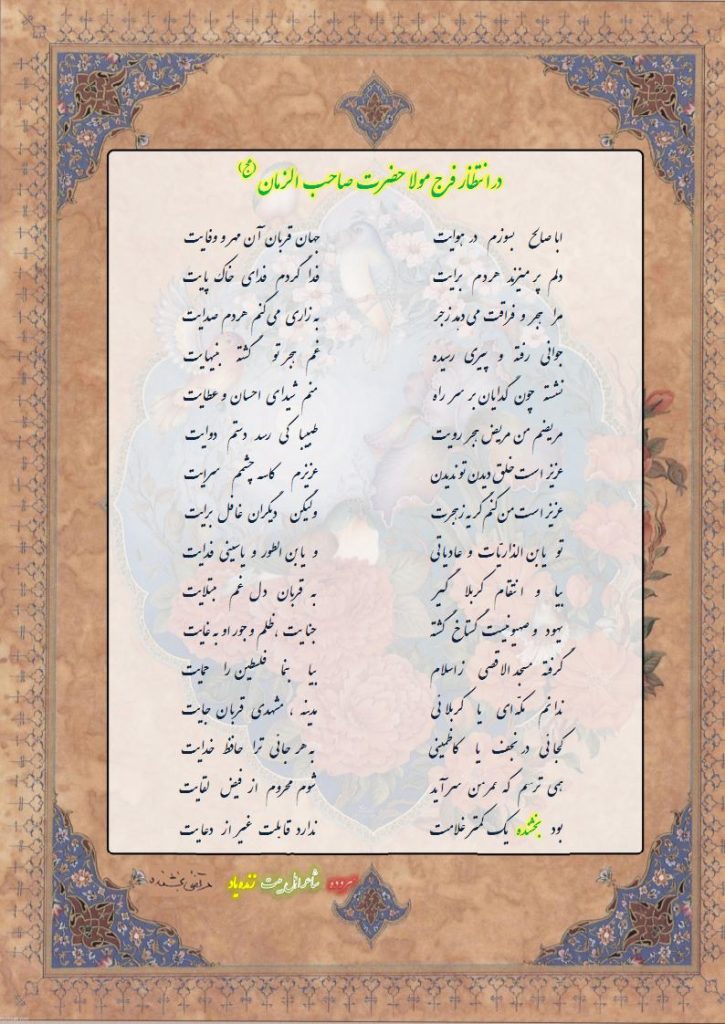 در انتظار فرج مولا حضرت صاحب الزمان (عج)
ابا صالح بسوزم در هوایت جهان قربان آن مهر و وفایت
دلم پر میزند هردم برایت فدا گردم فدای خاک پایت
مرا هجر و فراقت می دهد زجر به زاری می کنم هردم صدایت
جوانی رفته و پیری رسیده غم هجر تو گشته بینهایت
نشسته چون گدایان بر سر راه منم شیدای احسان و عطایت
مریضم من مریض هجر رویت طبیبا کی رسد دستم دوایت
عزیز است خلق دیدن تو ندیدن عزیزم کاسه چشمم سرایت
عزیز است من کنم گریه ز هجرت ولیکن دیگران غافل برایت
تو یابن الذاریات و عادیاتی و یابن الطور و یاسینی فدایت
بیا و انتقام کربلا گیر به قربان دل غم مبتلایت
یهود و صهیونیست گستاخ گشته جنایت ، ظلم و جور او به غایت
گرفته مسجد الاقصی ز اسلام بیا بنما فلسطین را حمایت
ندانم مکه ای یا کربلائی مدینه ، مشهدی قربان جایت
کجائی در نجف یا کاظمینی به هر جائی ترا حافظ خدایت
همی ترسم که عمر من سرآید شوم محروم از فیض لقایت
بود بخشنده یک کمتر غلامت ندارد قابلت غیر از دعایت
سروده شاعر اهل بیت زنده یاد